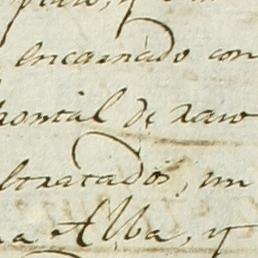 encarnado con
frontal de raso
ltratados, un
na Alba, y